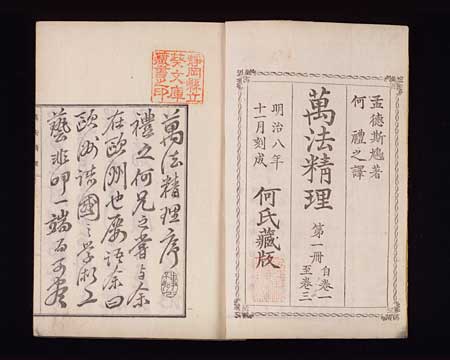 孟德斯鳩著
何 禮之譯
萬法精理 第一冊 自卷一
至卷三
明治八年
十一月刻成
何氏藏版
靜岡縣立
葵文庫
藏書之印
萬法精理序
禮之何兄之著與余
在歐洲也屡語余曰
歐洲諸國之學術工
藝非叩一端而可